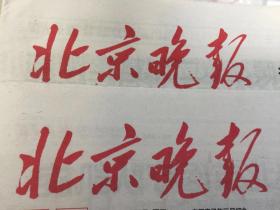 北京晚报
北京晚报